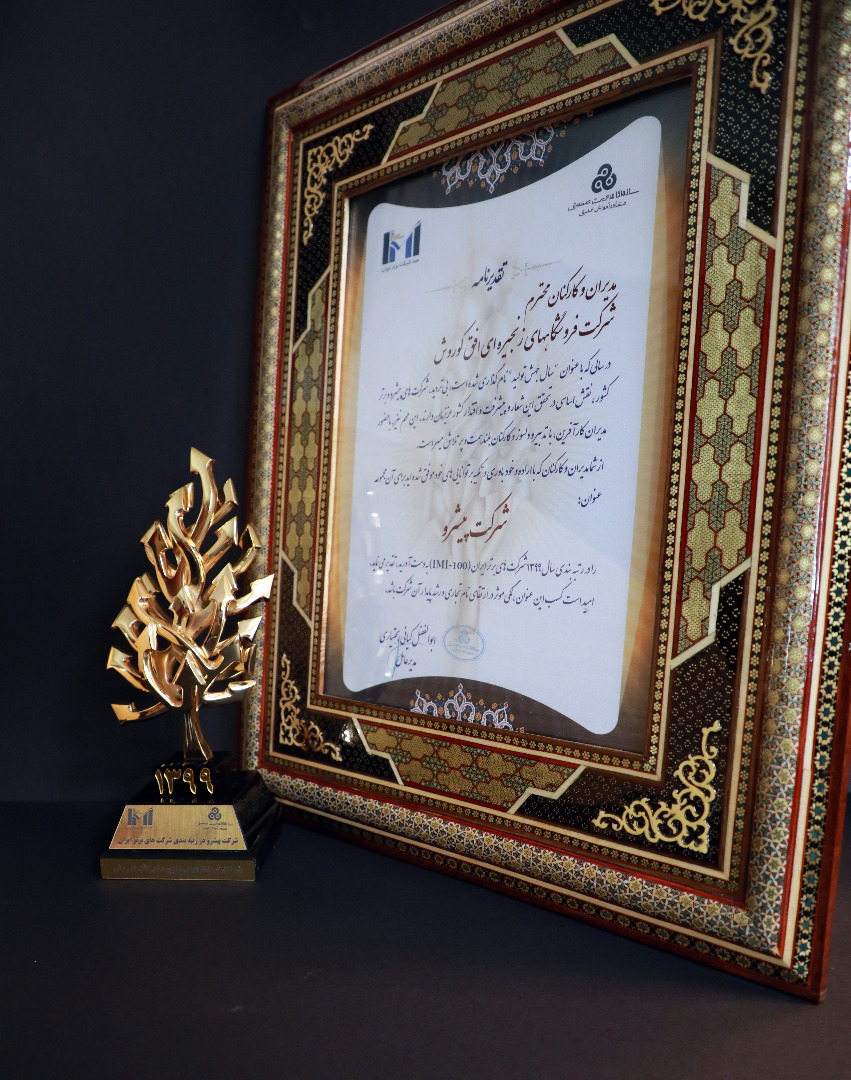 سازمان مدیریت صنعتی
صد شرکت برتر ایران
تقدیرنامه
مدیران و کارکنان محترم
شرکت فروشگاههای زنجیره ای افق کوروش
در سالی که با عنوان "سال جهش تولید" نام گذاری شده است، بی تردید، شرکت های پیشرو و برتر
کشور، نقش اساسی در تحقق این شعار و پیشرفت و اقتدار کشور عزیزمان دارند، این مهم نیز با حضور
مدیران کارآفرین، با تدبیر و دلسوز و کارکنان بلند همت و پر تلاش میسر است.
از شما مدیران و کارکنان که با اراده و خود باوری و تکیه بر توانایی های خود موفق شده اید برای آن مجموعه
عنوان:
شرکت پیشرو
را در رتبه بندی سال ۱۳۹۹ شرکت های برتر ایران (IMI-100) بدست آورید، تقدیر می نماید.
امید است کسب این عنوان، کمکی موثر در ارتقای نام تجاری و رشد پایدار آن شرکت باشد.
ابوالفضل کیانی بختیاری
مدیرعامل
۱۳۹۹
شرکت پیشرو در رتبه بندی شرکت های برتر ایران